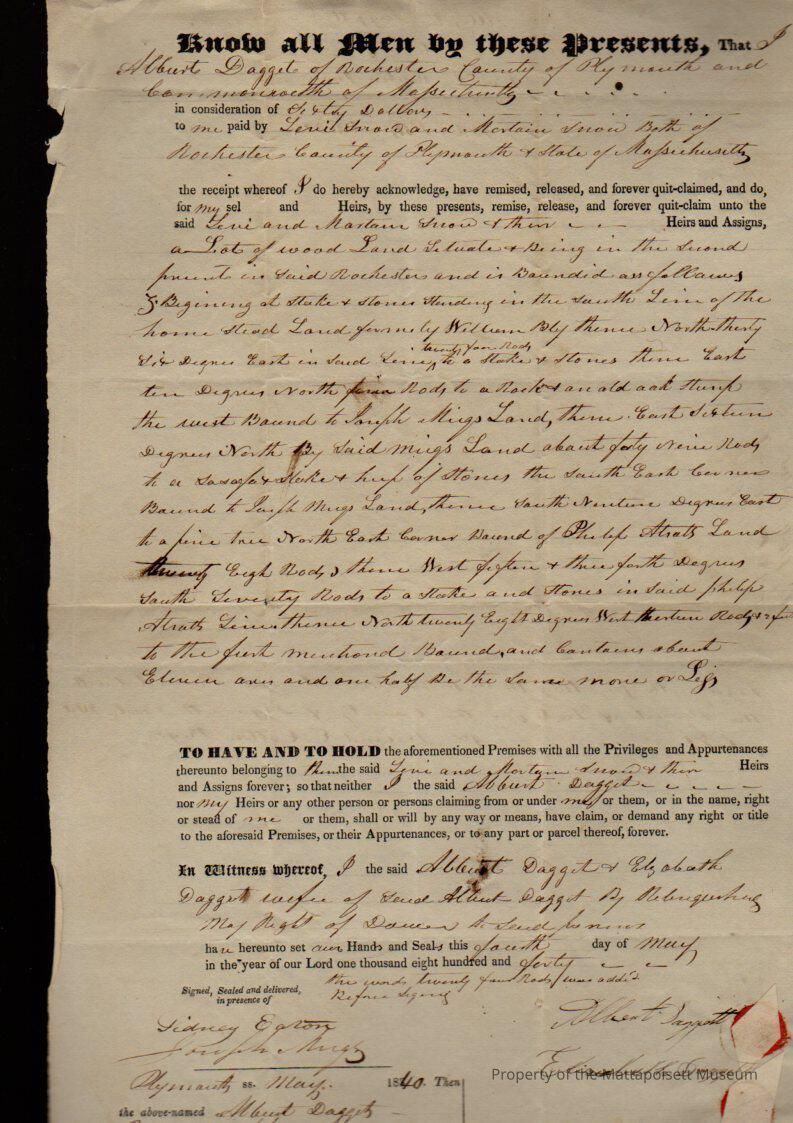 Know all Men by these Presents, That I
Albert Dagget of Rochester County of Plymouth and
Commonwealth of Massichusetts
in consideration of Sixty Dollars
to me paid by Levi Snow and Martain Snow Both of
Rochester County of Plymouth & State of Massichusetts
the receipt whereof I do hereby acknowledge, have remised, released, and forever quit-claimed, and do,
for my sel and Heirs, by these presents, remise, release, and forever quit-claim unto the
said Levi and Martain Snow & their Heirs and Assigns,
a Lot of wood Land Situate & Being in the Second
in Said Rochester and is Boundid as follows
Begining at Stake & Stones Standing in the South Line of the
home Stead Land formely William Bly thence North thirty
Six Degres East in Said Line twenty four Rods to a Stake & Stones thence East
ten Degres North Rods to a Rock & an old oak Stump
the west Bound to Joseph Meigs Land, thence East Sixteen
Degres North By Said Meigs Land about forty Nine Rods
to a Stake & heep of Stones the South East Corner
Bound to Joseph Meigs Land, thence South Ninteen Degres East
to a pine tree North East Corner Bound of Philip Atsatts Land
Eigh Rods thence West fiften & three forth Degres
South Seventy Rods to a Stake and Stones in Said philip
Atsatts Line thence North twenty Eight Degres West Rods
to the first mentiond Bound, and Contains about
Eleven acres and one half Be the Same more or Less
TO HAVE AND TO HOLD the aforementioned Premises with all the Privileges and Appurtenances
thereunto belonging to them the said Levi and Martain Snow & their Heirs
and Assigns forever; so that neither I the said Albert Dagget
nor my Heirs or any other person or persons claiming from or under me or them, or in the name, right
or stead of me or them, shall or will by any way or means, have claim, or demand any right or title
to the aforesaid Premises, or their Appurtenances, or to any part or parcel thereof, forever.
In Witness whereof, I the said Albert Dagget & Elizabath
Dagget wife of Said Albert Dagget By Relenquishing
My Right of Dower to Said
have hereunto set our Hands and Seals this fourth day of May
in the year of our Lord one thousand eight hundred and forty
the words twenty four Rods was added
Before Signing
Signed, Sealed and delivered,
in presence of
Sidney Eaton
Joseph Meigs
Albert Daggett
Plymouth ss. May. 1840. Then
the above-named Albert Dagget
Property of the Mattapoisett Museum